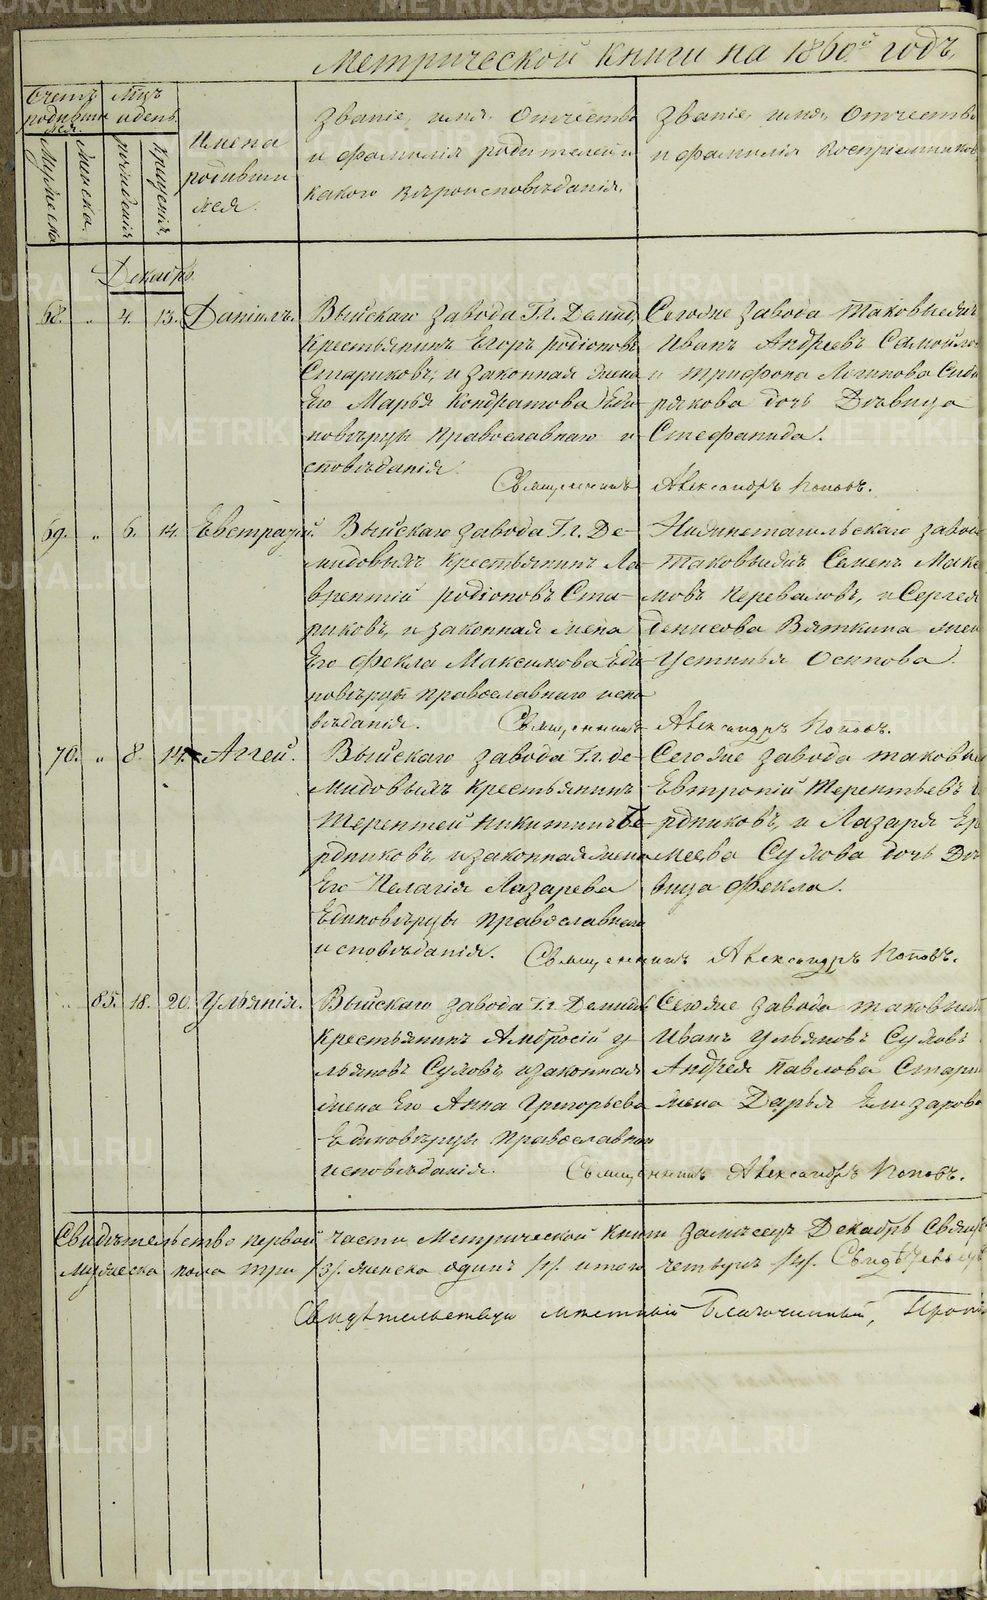 Метрической книги на 1860й годъ,
Счетъ родившихся.
Мужеска.
Женска.
Мцъ и день.
рожденія
крещенія.
Имена родившихся.
Званіе, имя, Отчество
и фамилія родителей и
какого Вѣроисповѣданія.
Званіе, имя, Отчество
и фамилія Воспріемниковъ
Декабрь
68. „ 4. 13. Даніилъ.
Выйскаго завода Гг. Демид.
крестьянинъ Егоръ родіоновъ
Стариковъ, и законная жена
Его Марья Кондратова Еди-
новѣрцы Православнаго и-
сповѣданія.
Сегоже завода таковыежъ
Иванъ Андреевъ Самойло-
и трифона Логинова
рякова дочь Дѣвица
Стефанида.
Священникъ Александръ Поповъ.
69. „ 6. 14. Евстратій.
Выйскаго завода Гг. Де-
мидовыхъ крестьянинъ Ла-
врентій родіоновъ Ста-
риковъ, и законная жена
Его Фекла Максимова Еди-
новѣрцы православнаго испо
вѣданія.
Нижнетагильскаго завода
таковыежъ Семенъ Макс
мовъ Переваловъ, и Сергея
Денисова Вяткина жена
Устинья Осипова.
Священникъ Александръ Поповъ.
70. „ 8. 14. Аггей.
Выйскаго завода Гг. де-
мидовыхъ крестьянинъ
Терентей Никитинъ Бе-
рдниковъ, и законная жена
Его Пелагія Лазарева
Единовѣрцы православнаго
исповѣданія.
Сегоже завода таковые
Евтропій Терентьевъ
рдниковъ, и Лазаря Ер
меева Сухова дочь Дѣ
вица Фекла.
Священникъ Александръ Поповъ.
„ 85. 18. 20. Ульянія.
Выйскаго завода Гг Демидов
крестьянинъ Амбросій у-
льяновъ Суховъ, и законная
жена Его Анна Григорьева
Единовѣрцы православнаго
исповѣданія.
Сегоже завода таковыежъ
Иванъ Ульяновъ Суховъ
Андрея Павлова Стари
жена Дарья Елизарова
Священникъ Александръ Поповъ.
Свидѣтельство первой части Метрической книги замѣсецъ Декабрь
Мужеска пола три /3/. женска одинъ /1/. итого четыре /4/.
Свидѣтельствую мѣстный Благочинный,
METRIKI.GASO-URAL.RU